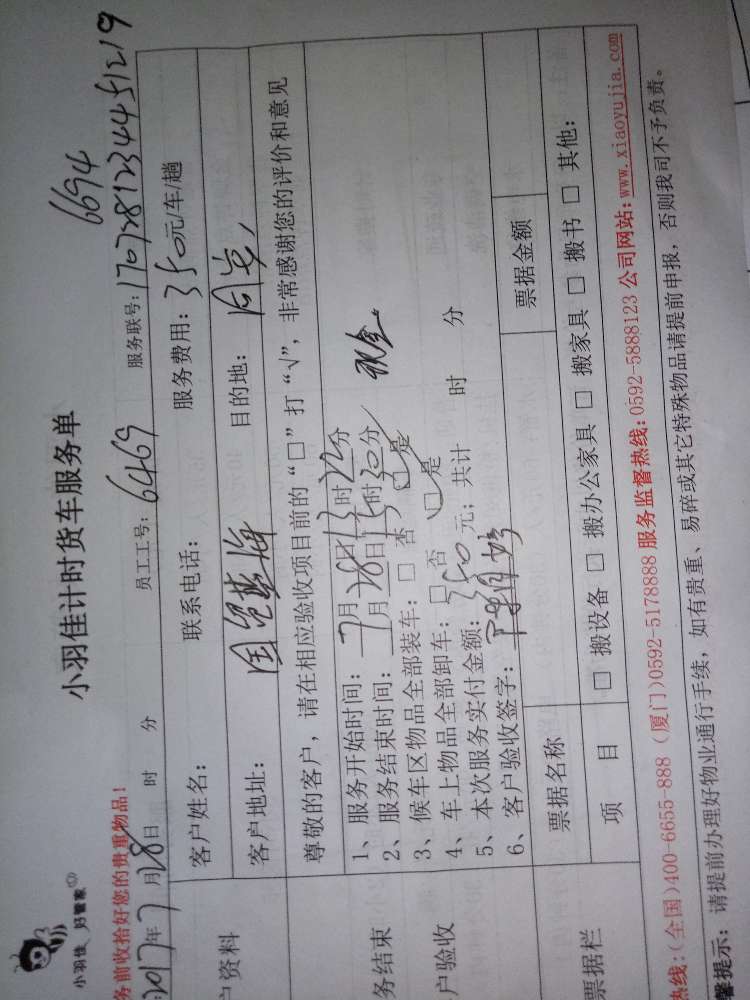 小羽佳 好管家
小羽佳计时货车服务单
6694
务前收拾好您的贵重物品！
2017年7月28日 时 分 员工工号：6469 服务联号：1707281234451219
户资料 客户姓名： 联系电话： 服务费用：350元/车/趟
客户地址： 目的地：
尊敬的客户，请在相应验收项目前的“□”打“√”，非常感谢您的评价和意见
务结束
户验收
1、服务开始时间：7月28日13时22分
2、服务结束时间：月28日15时30分 现金
3、候车区物品全部装车：□否 □是
4、车上物品全部卸车：□否 □是
5、本次服务实付金额：350元；共计 时 分
6、客户验收签字：
票据栏 票据名称 票据金额
项 目 □搬设备 □搬办公家具 □搬家具 □搬书 □其他：
热线：(全国)400-6655-888 (厦门)0592-5178888 服务监督热线：0592-5888123 公司网站：www.xiaoyujia.com
馨提示：请提前办理好物业通行手续，如有贵重、易碎或其它特殊物品请提前申报，否则我司不予负责。